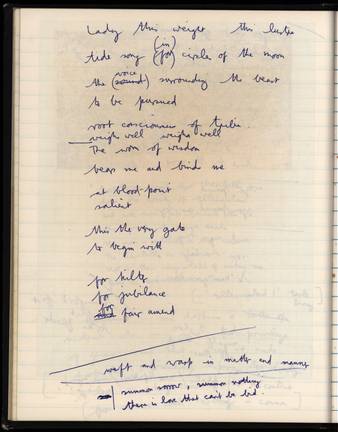 Lady this weight this lustre
(in)
tide song (for) circle of the moon
voice
the (sound) surrounding the beast
to be pursued
root consciousness of
weighs well weighs well
The worm of wisdom
bears me and binds me
at blood-point
salient
this the very gate
to begin with
for
for jubilance
for
fair amend
weft and warp in metter and manner
summon sorrow, summon nothing
there is love that can't be bid.